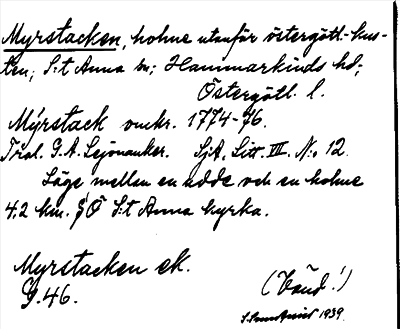 Myrstacken, holme utanför östergötl. kus-
ten; S:t Anna sn; Hammarkinds hd;
Östergötl. l.
Myrstack omkr. 1774-76.
Trol. G. A. Lejonanker. SjA. Litt. III. N:o 12.
Läge mellan en udde och en holme
4,2 km. Ö S:t Anna kyrka.
Myrstacken ek.
G. 46.
(Vänd!)
1939.